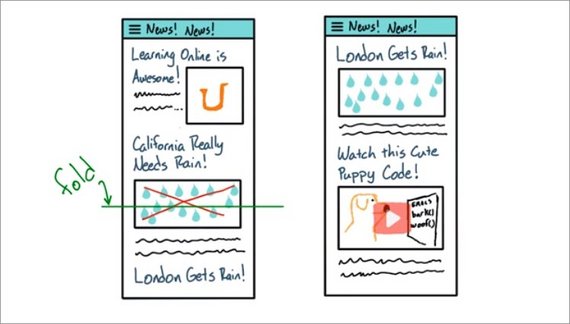 News! News!
Learning Online is
Awesome!
U
California Really
Needs Rain!
fold
London Gets Rain!
News! News!
London Gets Rain!
Watch this Cute
Puppy Code!
bark()
woof()